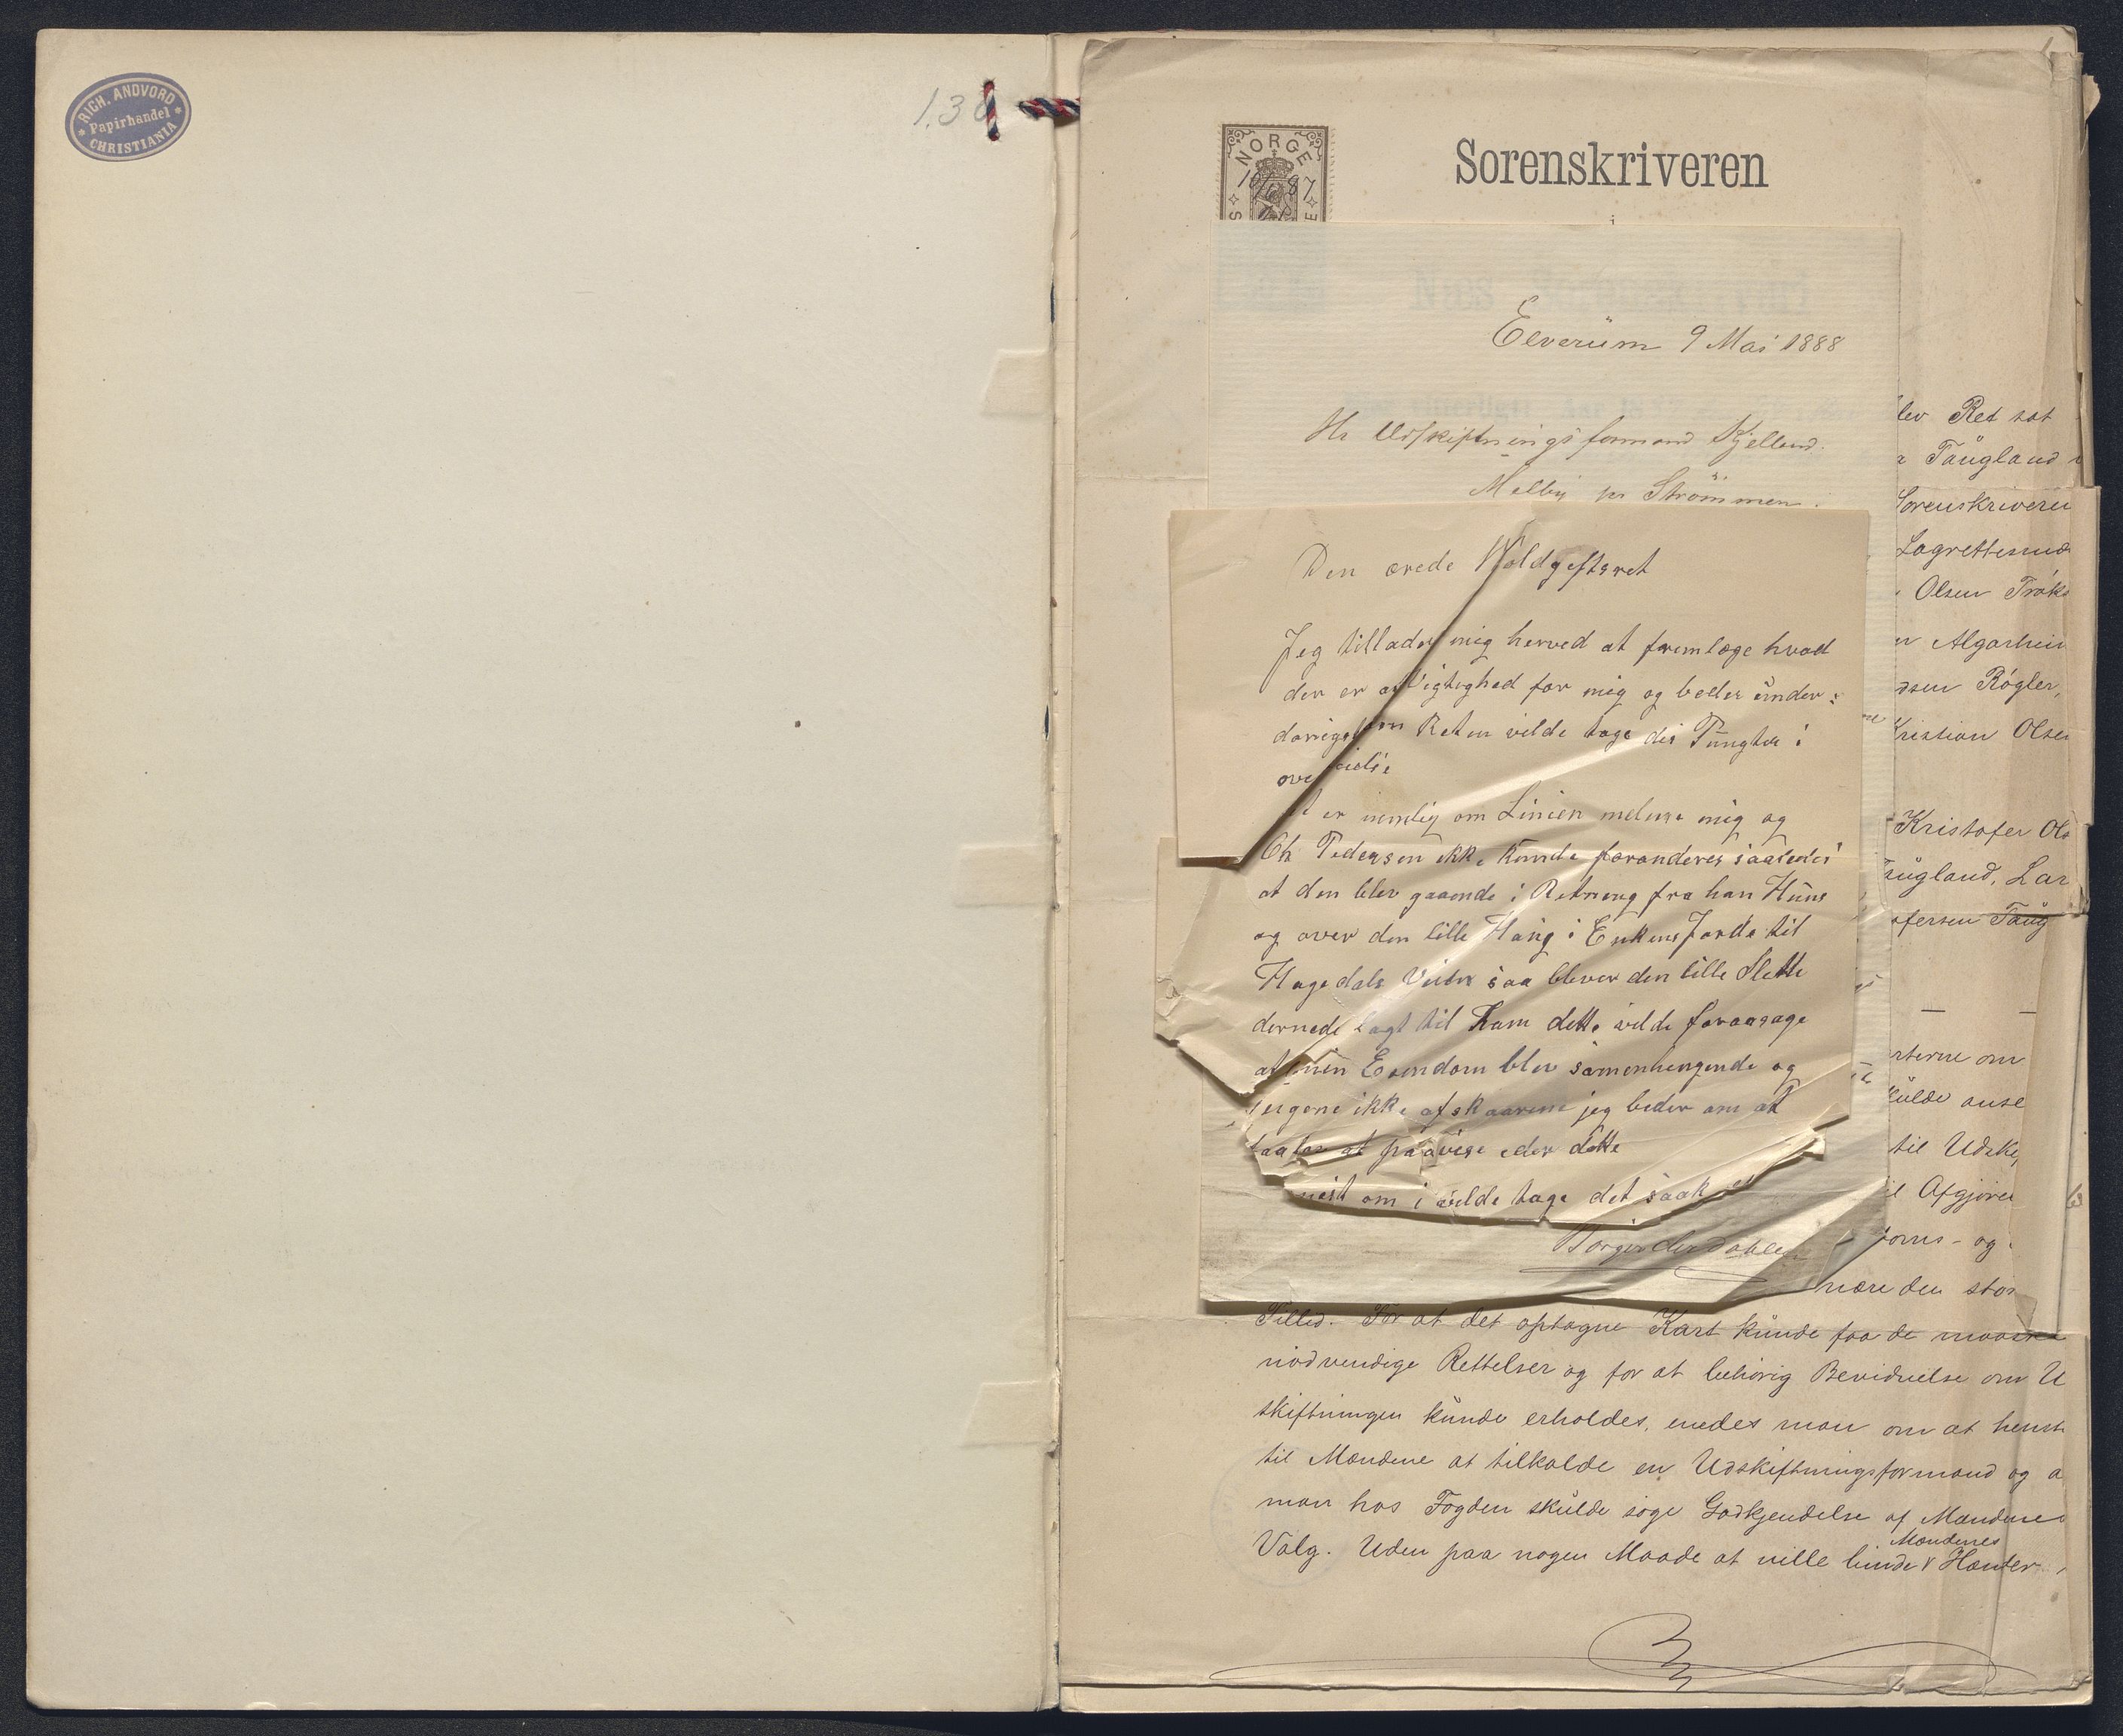 RICH. ANDVORD
Papirhandel
CHRISTIANIA
1.3
Sorenskriveren
i
NORGE
Elverum 9 Mai 1888
Hr Udskiftningsformand Kjelland.
Melby pr Strömmen.
Den ærede Woldgiftsret
Jeg tillader mig herved at fremlæge hvad
der er af Vigtighed for mig og beder ünder:
danigst om Reten vilde tage dis Püngter i
over
er nemlig om Linien melem mig og
Ch Pedersen ikke künde foranderes saaledes
at den blev gaaende i Retning fra han Hüus
og over den lille Haug i Enkens Jorde til
Hagedals Veien saa blever den lille Slette
dernede lagt til Ham dette vilde foraasage
at min Eiendom blev samenhengende og
ikke afskaarene jeg beder om at
at paavise eder dette
om i vilde tage det saak
lev Ret sat
Taugland
Sorenskriveren
Lagrettesmæ
Olsen
Algarheim
dsen Rögler,
Kristian Olsen
Kristofer Ols
augland, Lar
ofersen Taug
rterne om
külde anse
til Udski
il Afgjörel
oms- og
nære den stor
Tillid. For at det optagne Kart künde faa de maaske
nödvendige Rettelser og for at behörig Bevidnelse om U
skiftningen künde erholdes, enedes man om at henst
til Mændene at tilkalde en Udskiftningsformand og a
man hos Fogden skülde söge Godkjendelse af Mændenes
Valg. Uden paa nogen Maade at ville binde Mændenes Hænder